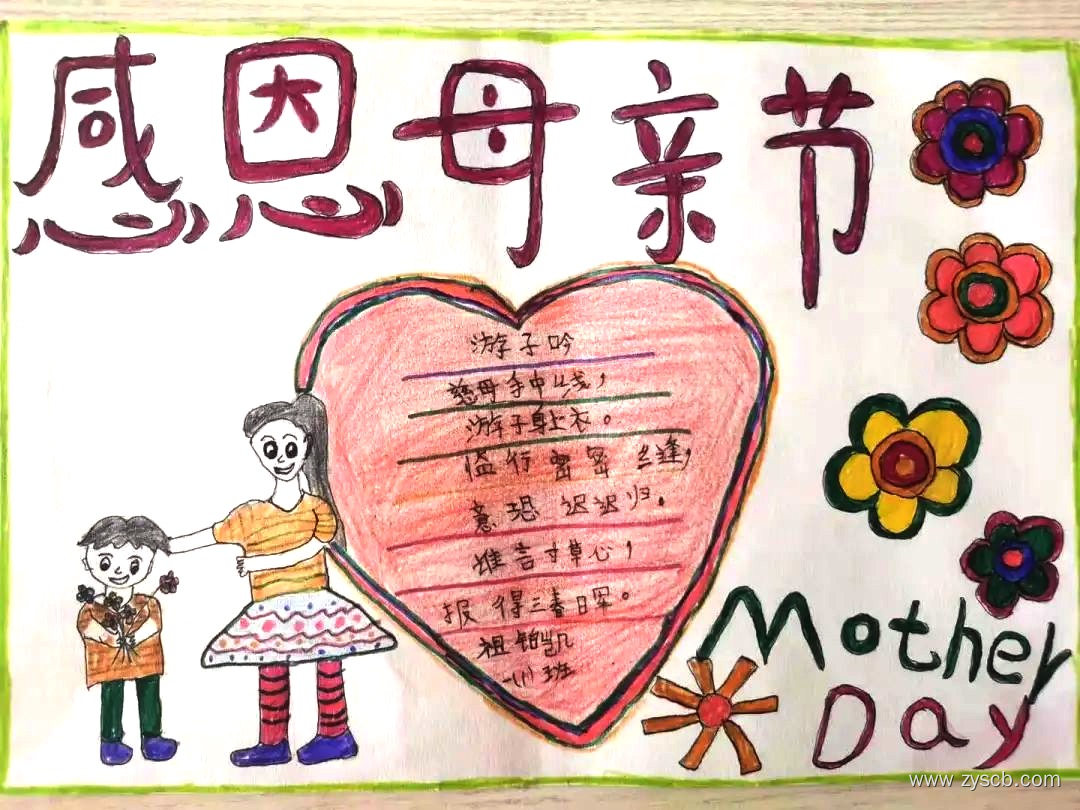 感恩母亲节
游子吟
慈母手中线，
游子身上衣。
临行密密缝，
意恐迟迟归。
谁言寸草心，
报得三春晖。
祖铂凯
一(1)班
Mother
Day
www.zyscb.com